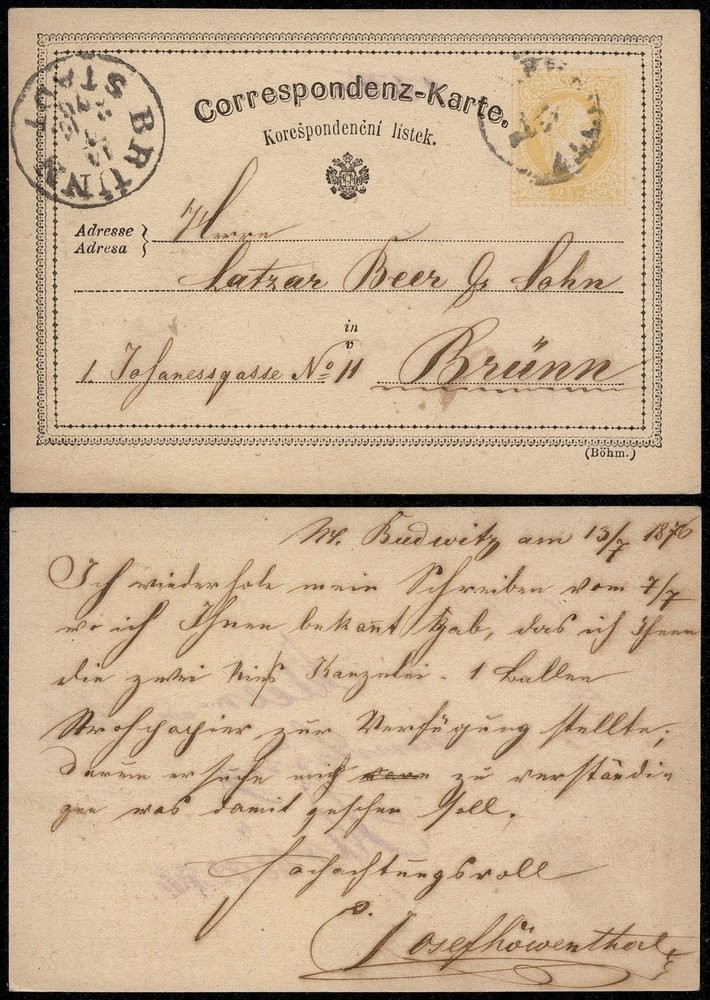 Correspondenz-Karte.
Korešpondenční lístek.
BRÜNN
STADT
Adresse
Adresa
Herrn
Latzar Beer & Sohn
in
v
1. Johanessgasse No 11 Brünn
(Böhm.)
M. Budwitz am 13/7 1876
Ich wiederhole mein Schreiben vom 7/7
wo ich Ihnen bekannt gab, das ich Ihnen
die zwei Rieß Kanzelei - 1 Ballen
Strohpapier zur Verfügung stellte;
darum ersuche mich zu verständi
gen was damit geschen soll.
Hochachtungsvoll
Josef Löwenthal